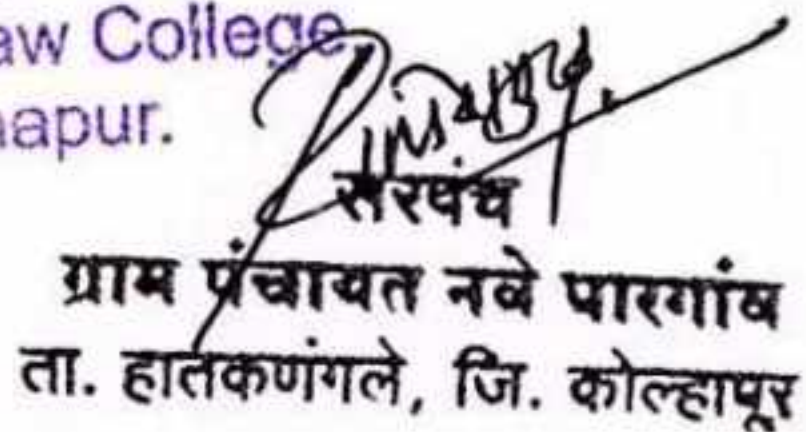 aw College,
apur.
सरपंच
ग्राम पंचायत नवे पारगांव
ता. हातकणंगले, जि. कोल्हापूर